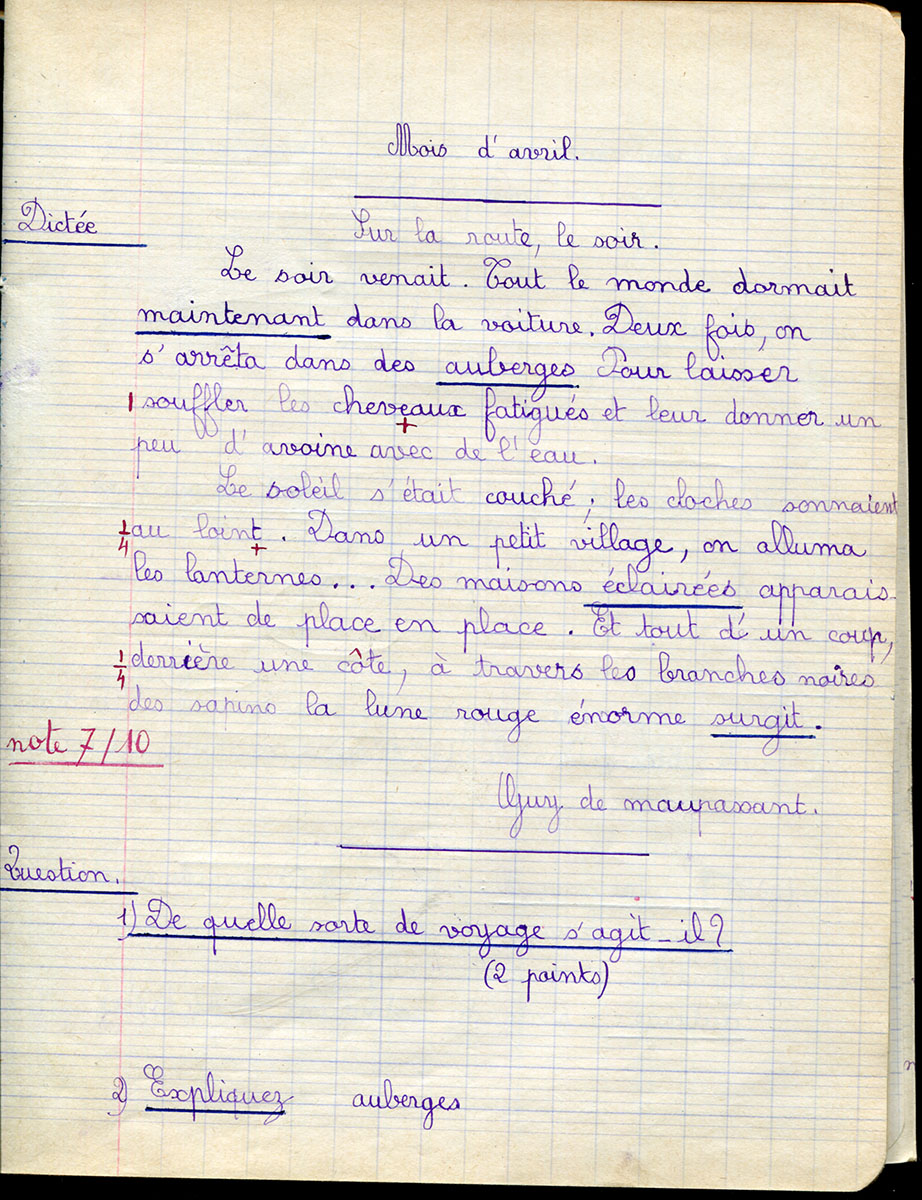 Mois d'avril.
Dictée
Sur la route, le soir.
Le soir venait. Tout le monde dormait
maintenant dans la voiture. Deux fois, on
s'arrêta dans des auberges Pour laisser
1 souffler les cheveaux fatigués et leur donner un
+
peu d'avoine avec de l'eau.
Le soleil s'était couché ; les cloches sonnaient
1/4 au loint. Dans un petit village, on alluma
+
les lanternes... Des maisons éclairées apparais-
saient de place en place. Et tout d'un coup,
1/4 derrière une côte, à travers les branches noires
des sapins la lune rouge énorme surgit.
note 7/10
Guy de maupassant.
Question.
1) De quelle sorte de voyage s'agit-il?
(2 points)
2) Expliquez auberges